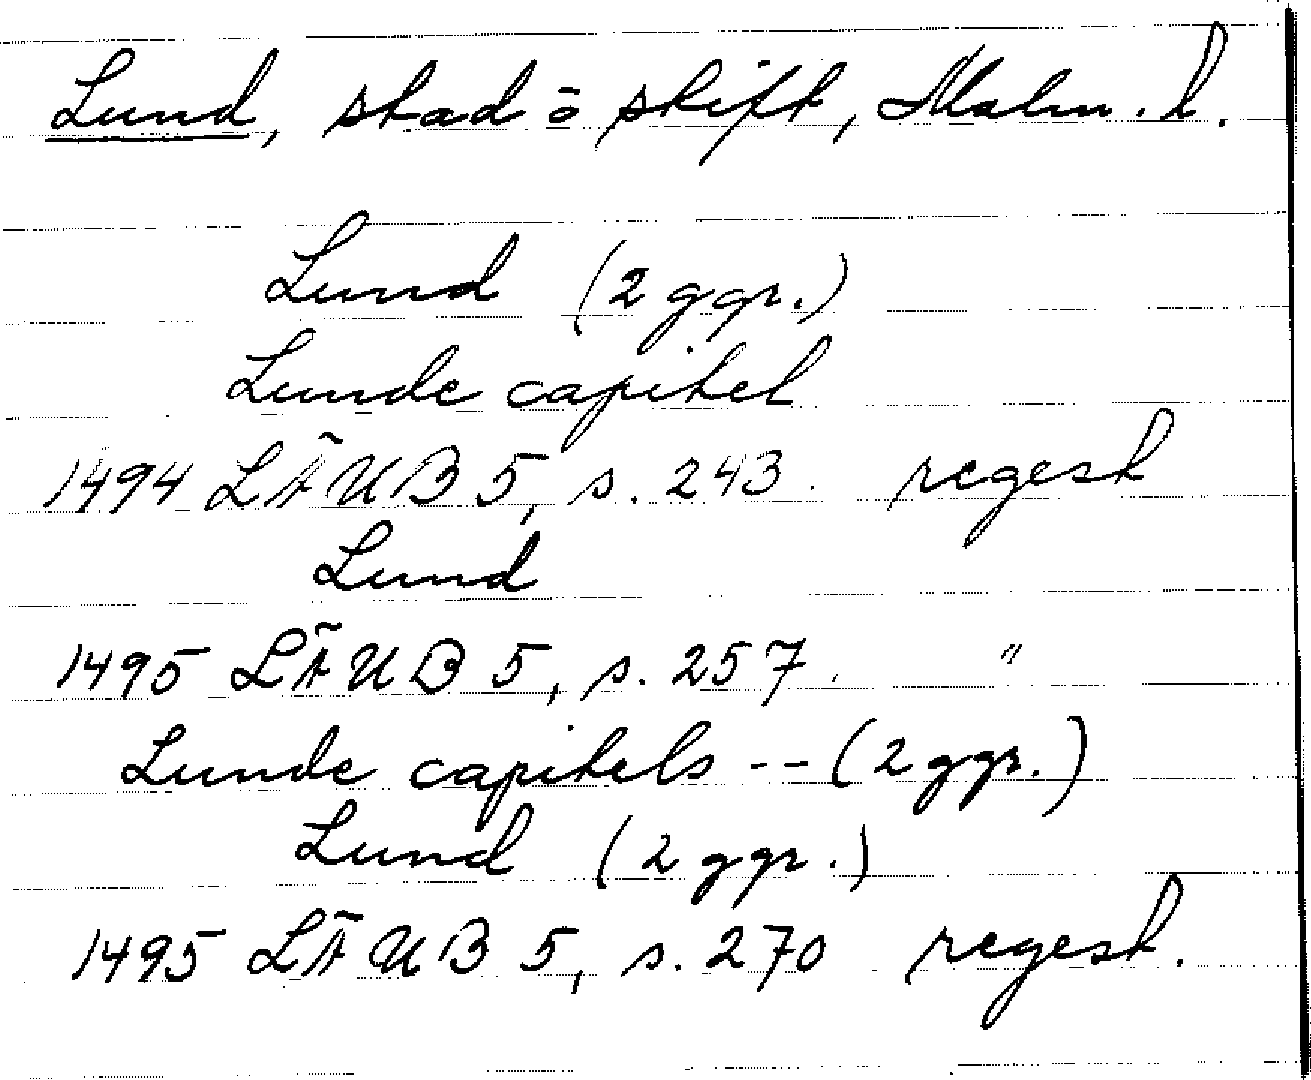 Lund, stad o skift, Malm. l.
Lund (2 ggr.)
Lunde capitel
1494 LÄUB 5, s. 243. regest
Lund
1495 LÄUB 5, s. 257. "
Lunde capitels -- (2 ggr.)
Lund (2 ggr.)
1495 LÄUB 5, s. 270 regest.